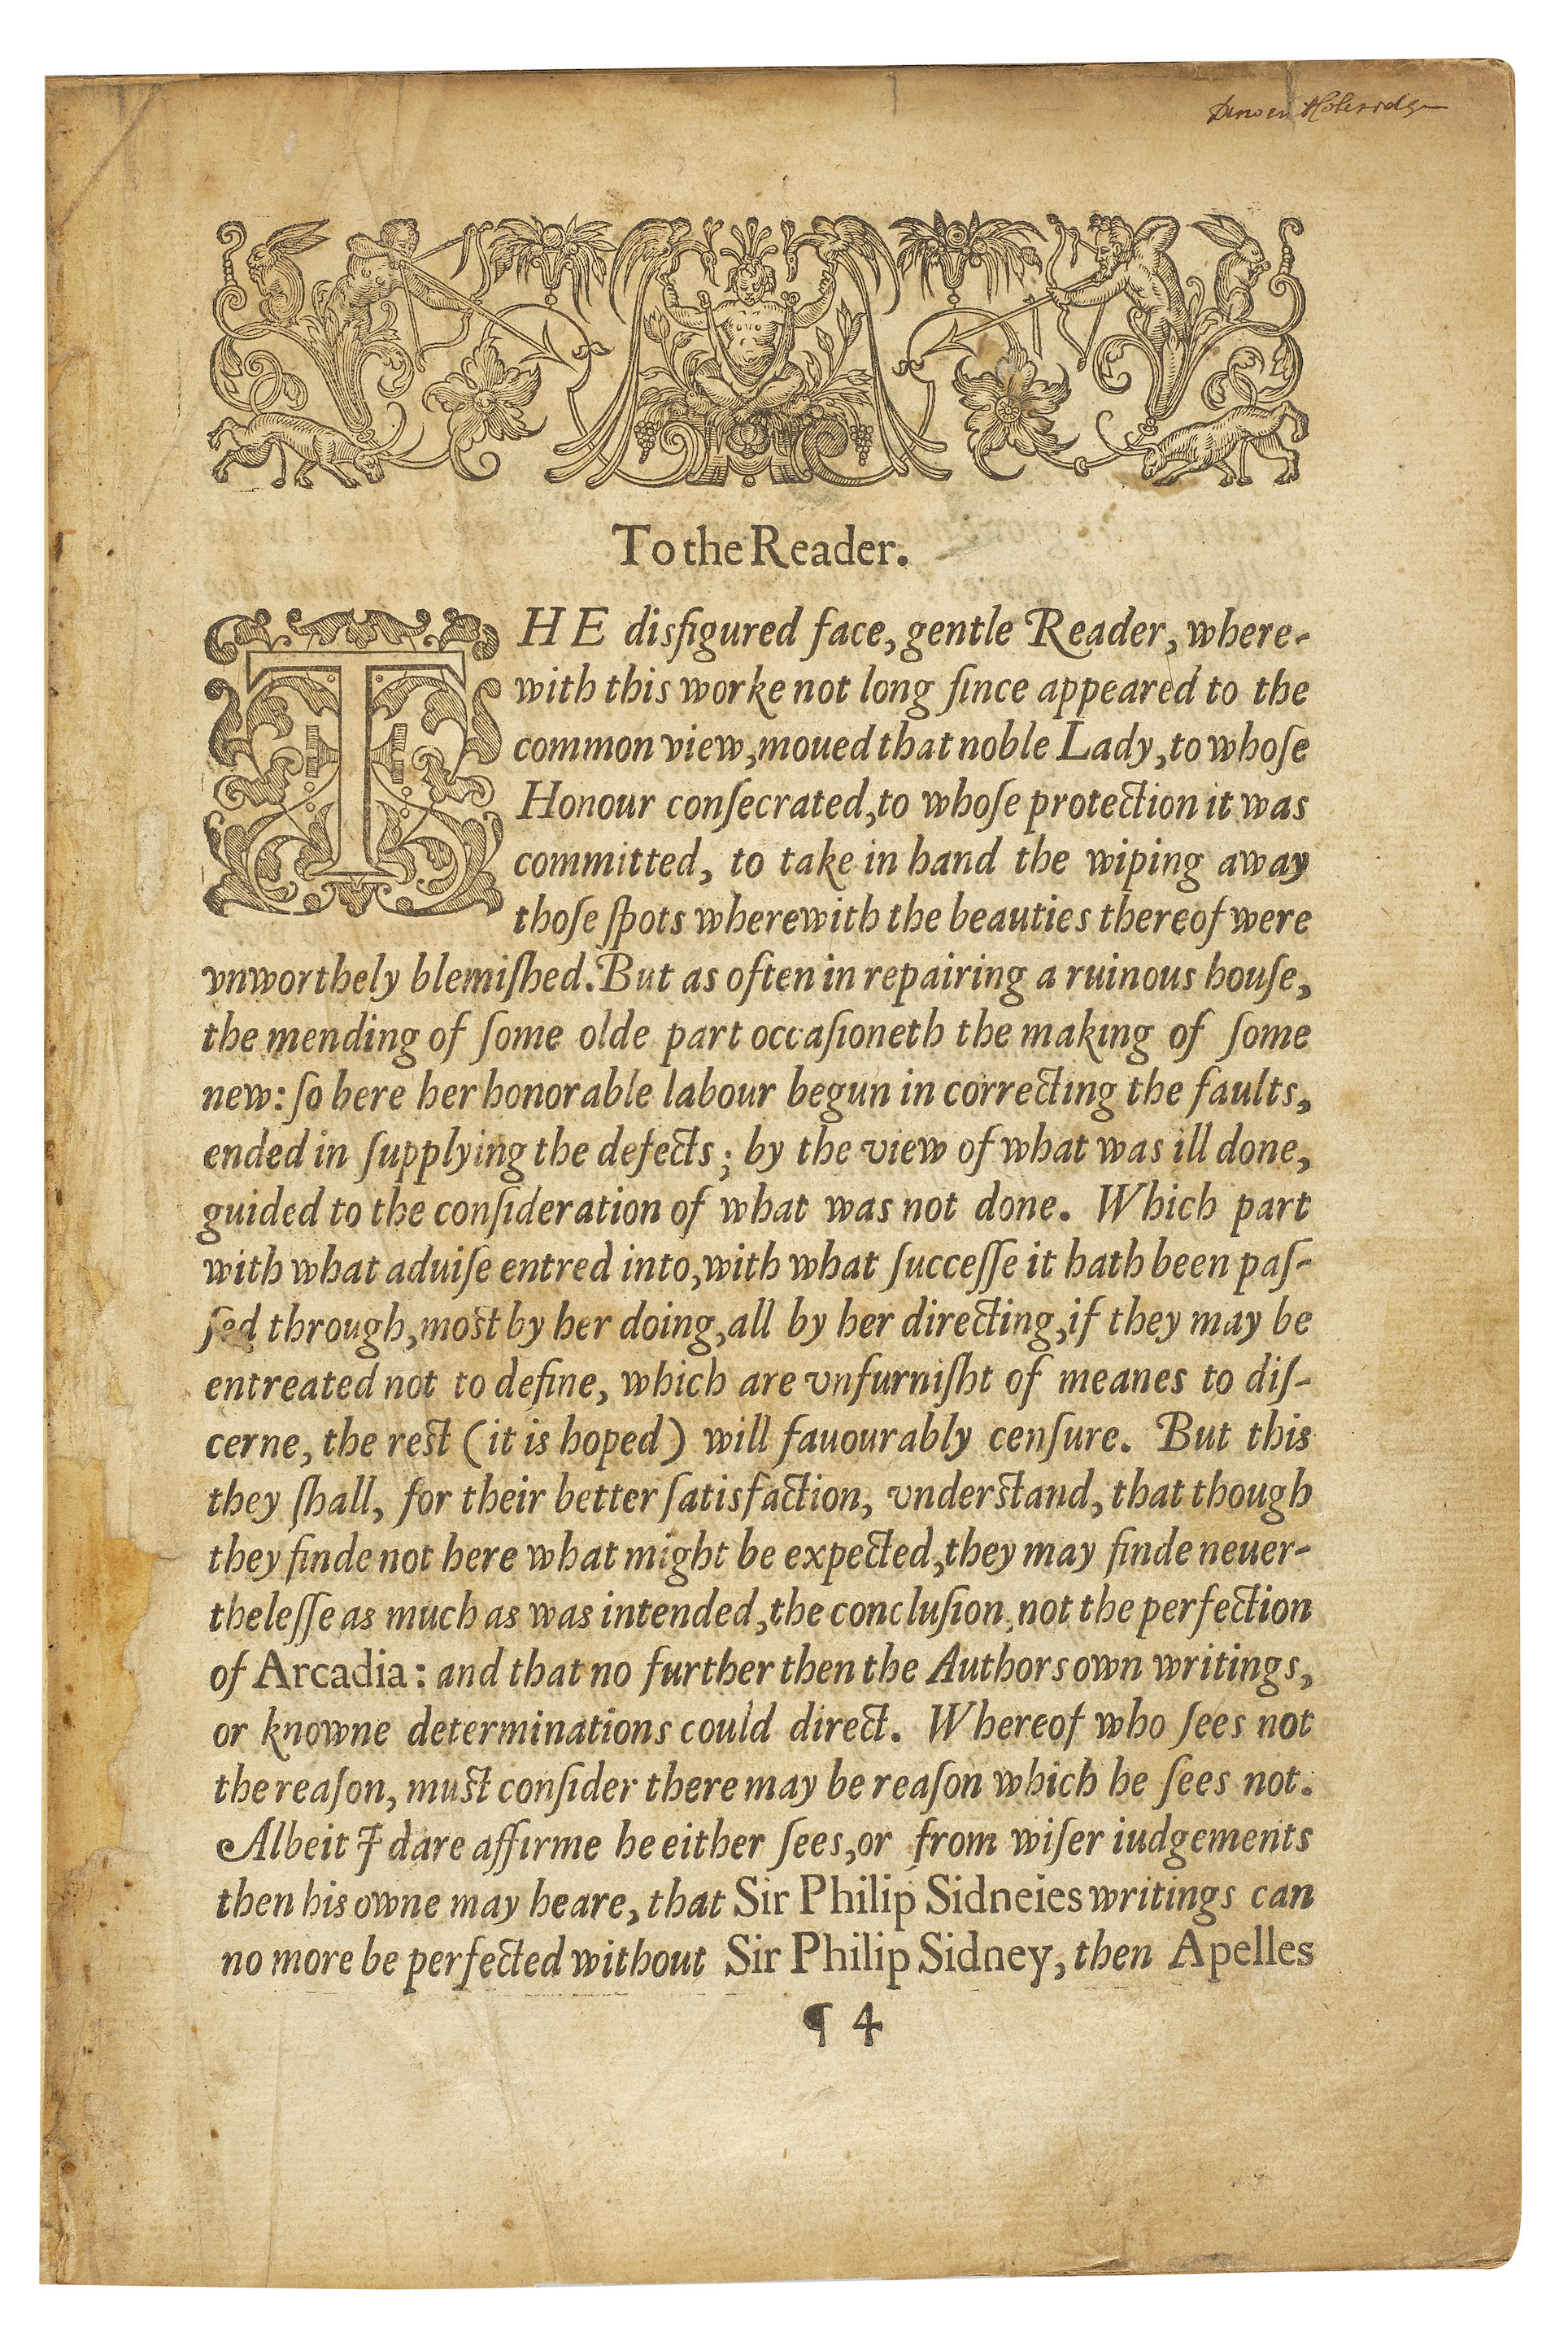 To the Reader.
THE disfigured face, gentle Reader, where-
with this worke not long ſince appeared to the
common view, moued that noble Lady, to whoſe
Honour conſecrated, to whoſe protection it was
committed, to take in hand the wiping away
thoſe ſpots wherewith the beauties thereof were
vnworthely blemiſhed. But as often in repairing a ruinous houſe,
the mending of ſome olde part occaſioneth the making of ſome
new: ſo here her honorable labour begun in correcting the faults,
ended in ſupplying the defects; by the view of what was ill done,
guided to the conſideration of what was not done. Which part
with what aduiſe entred into, with what ſucceſſe it hath been paſ-
ſed through, most by her doing, all by her directing, if they may be
entreated not to define, which are vnfurniſht of meanes to diſ-
cerne, the rest (it is hoped) will fauourably cenſure. But this
they ſhall, for their better ſatisfaction, vnderstand, that though
they finde not here what might be expected, they may finde neuer-
theleſſe as much as was intended, the concluſion, not the perfection
of Arcadia: and that no further then the Authors own writings,
or knowne determinations could direct. Whereof who ſees not
the reaſon, must conſider there may be reaſon which he ſees not.
Albeit I dare affirme he either ſees, or from wiſer iudgements
then his owne may heare, that Sir Philip Sidneies writings can
no more be perfected without Sir Philip Sidney, then Apelles
¶ 4